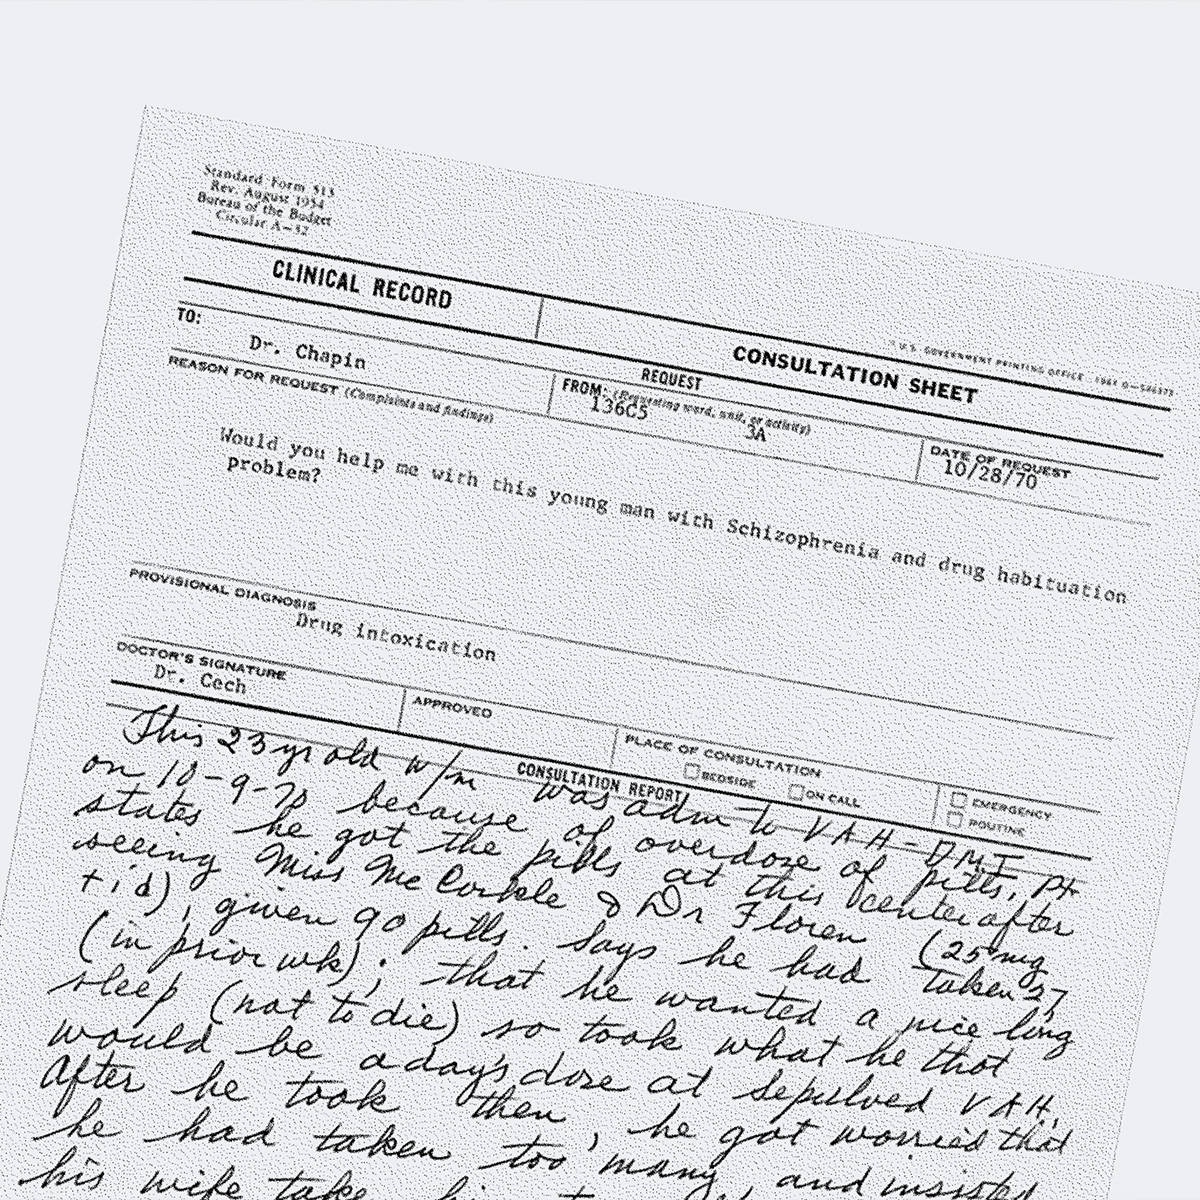 Standard Form 513
Rev. August 1954
Bureau of the Budget
Circular A—32
CLINICAL RECORD
CONSULTATION SHEET
U.S. GOVERNMENT PRINTING OFFICE
REQUEST
TO:
Dr. Chapin
FROM: (Requesting ward, unit, or activity)
136C5 3A
DATE OF REQUEST
10/28/70
REASON FOR REQUEST (Complaints and findings)
Would you help me with this young man with Schizophrenia and drug habituation
problem?
PROVISIONAL DIAGNOSIS
Drug intoxication
DOCTOR'S SIGNATURE
Dr. Cech
APPROVED
PLACE OF CONSULTATION
BEDSIDE ON CALL
EMERGENCY
ROUTINE
CONSULTATION REPORT
This 23 yr old w/m was adm to VAH-DMI
on 10-9-70 because of overdose of pills. Pt
states he got the pills at this center after
seeing Miss McCorkle & Dr Floren (25 mg
tid), given 90 pills. Says he had taken 27
(in prior wk); that he wanted a nice long
sleep (not to die) so took what he that
would be a day's dose at sepulved VAH.
After he took then, he got worried that
he had taken too many, and insisted
his wife take him to